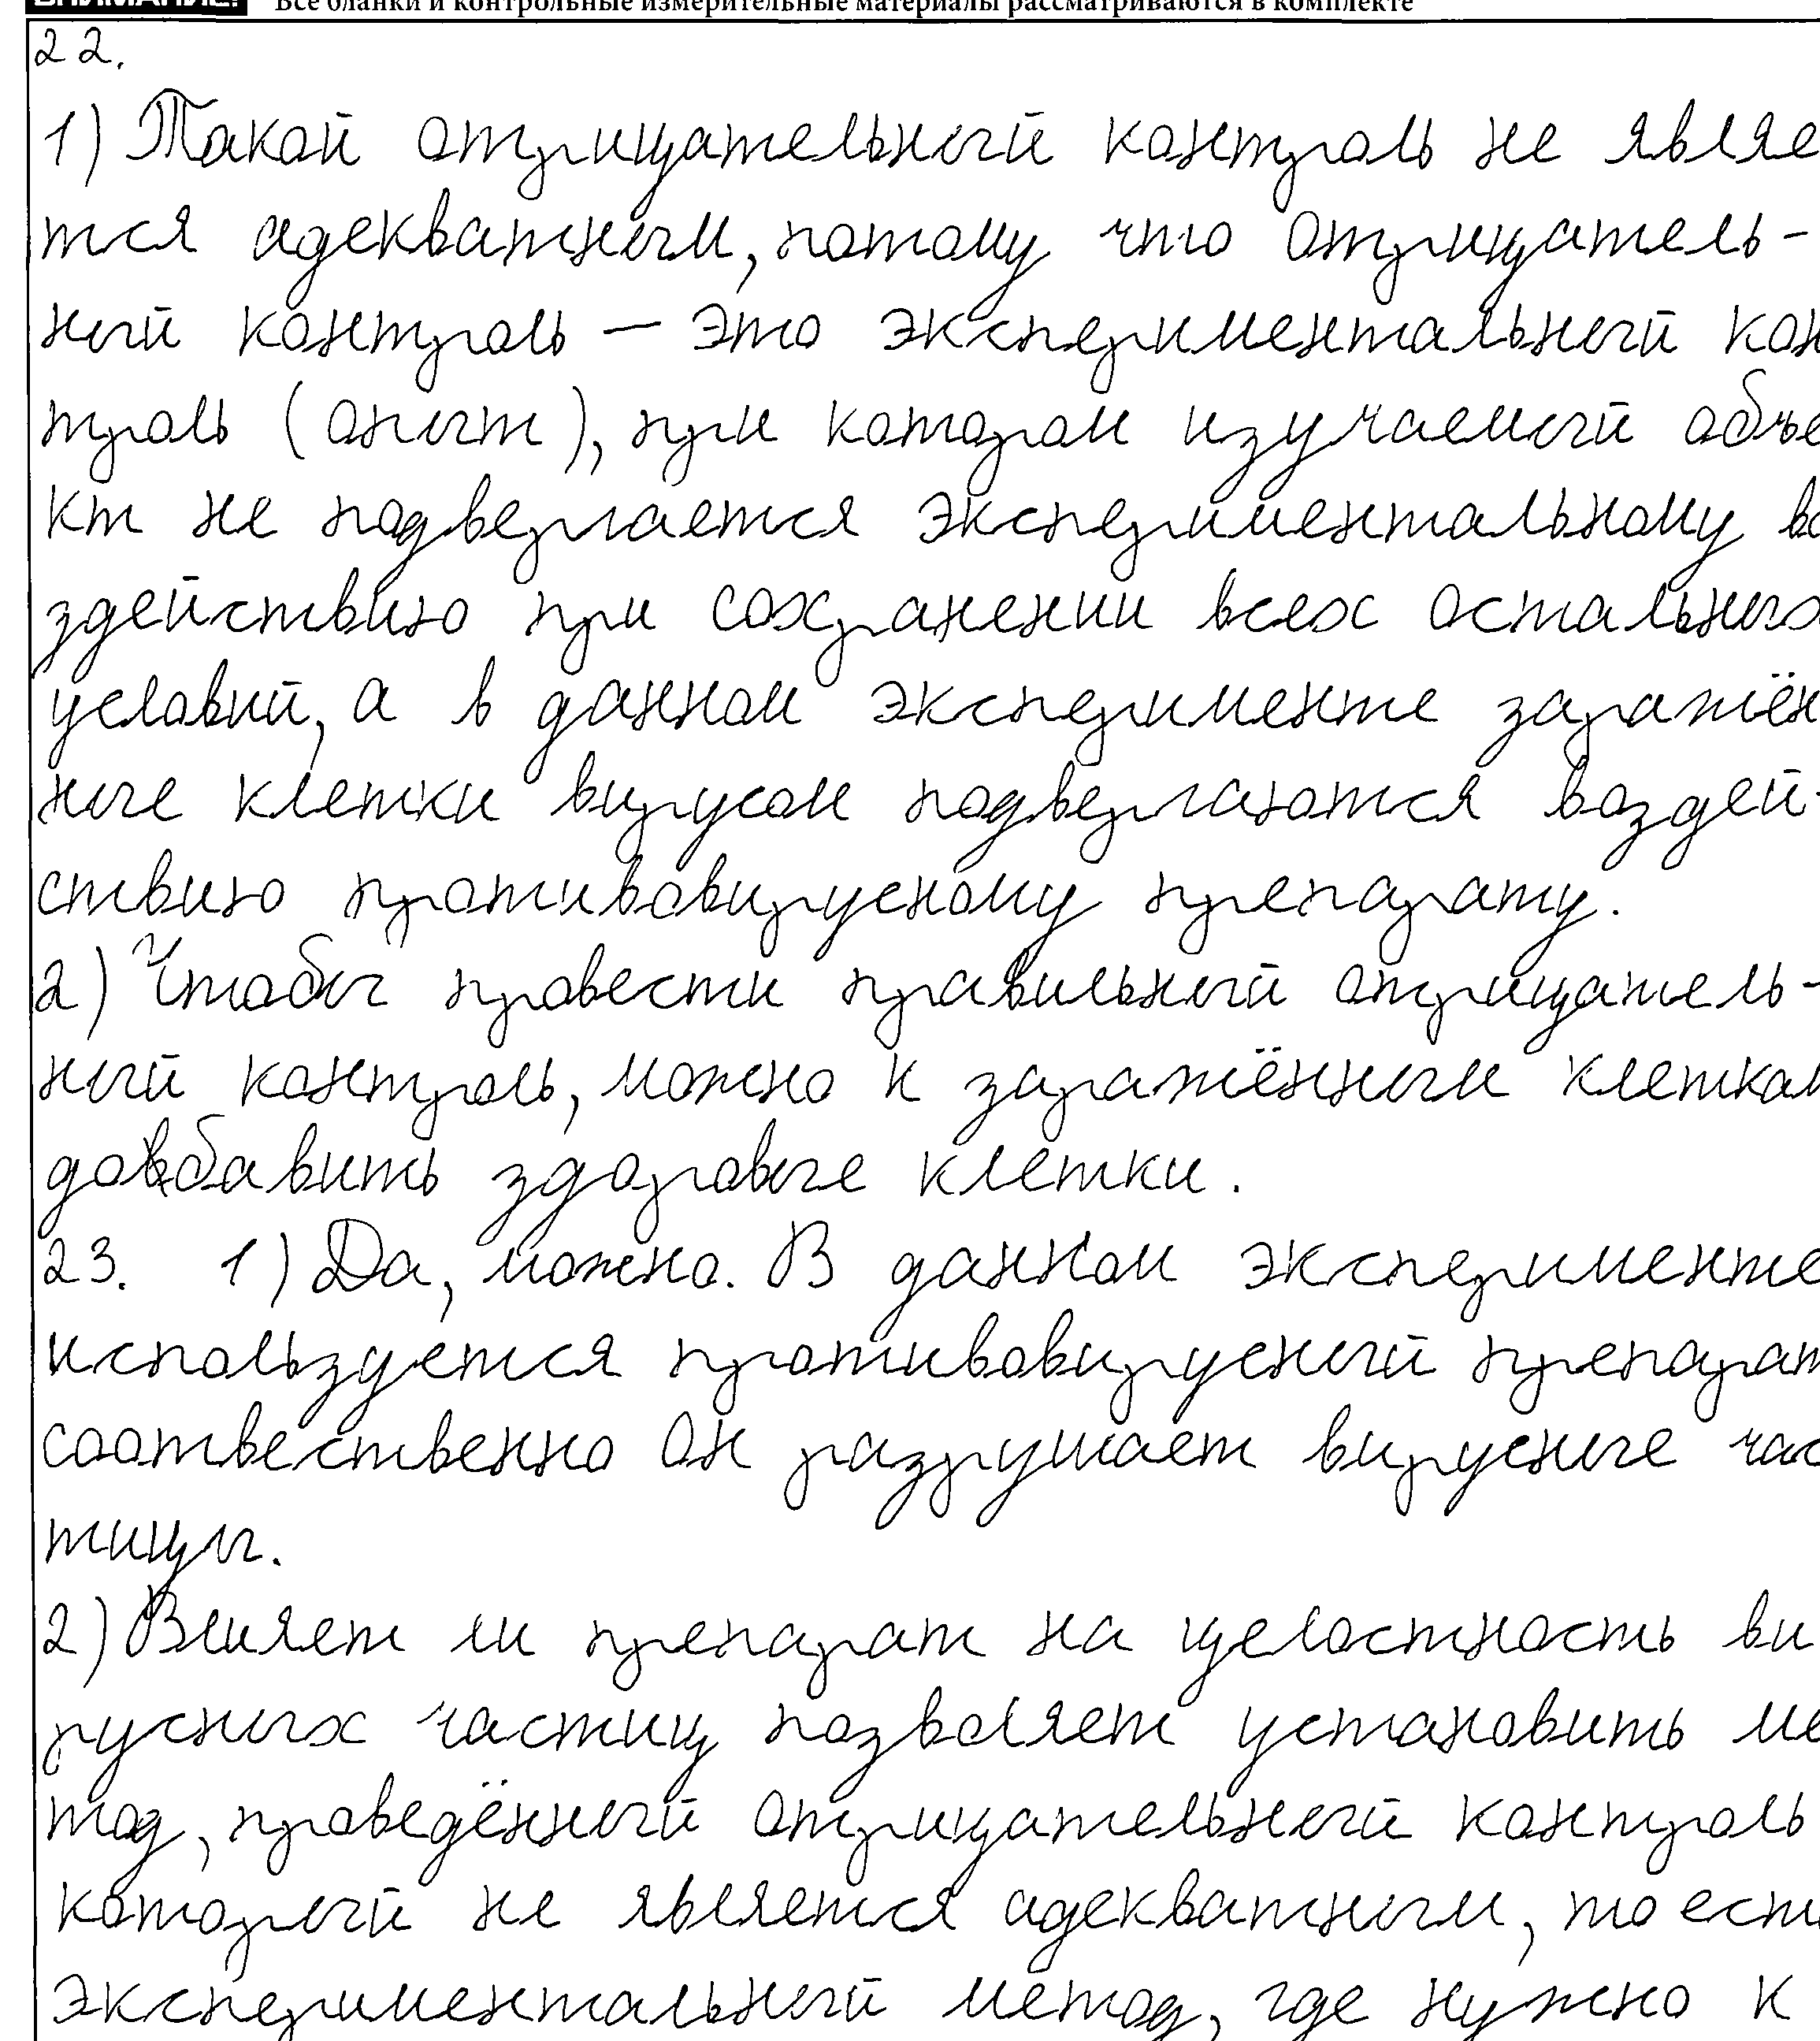 ВНИМАНИЕ! Все бланки и контрольные измерительные материалы рассматриваются в комплекте
22.
1) Такой отрицательный контроль не являе
тся адекватным, потому что отрицатель-
ный контроль — это экспериментальный кон
троль (опыт), при котором изучаемый объе
кт не подвергается экспериментальному во
здействию при сохранении всех остальных
условий, а в данном эксперименте заражён
ные клетки вирусом подвергаются воздей-
ствию противовирусному препарату.
2) Чтобы провести правильный отрицатель-
ный контроль, можно к заражённым клеткам
добавить здоровые клетки.
23. 1) Да, можно. В данном эксперименте
используется противовирусный препарат
соотвественно он разрушает вирусные час
тицы.
2) Влияет ли препарат на целостность ви
русных частиц позволяет установить ме
тод, проведённый отрицательный контроль
который не является адекватным, то есть
экспериментальный метод, где нужно к